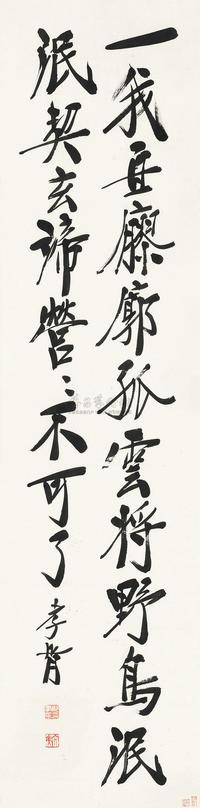 一我亙廫廓孤雲将野鳥泯
泯契玄諦營〻不可了 孝胥